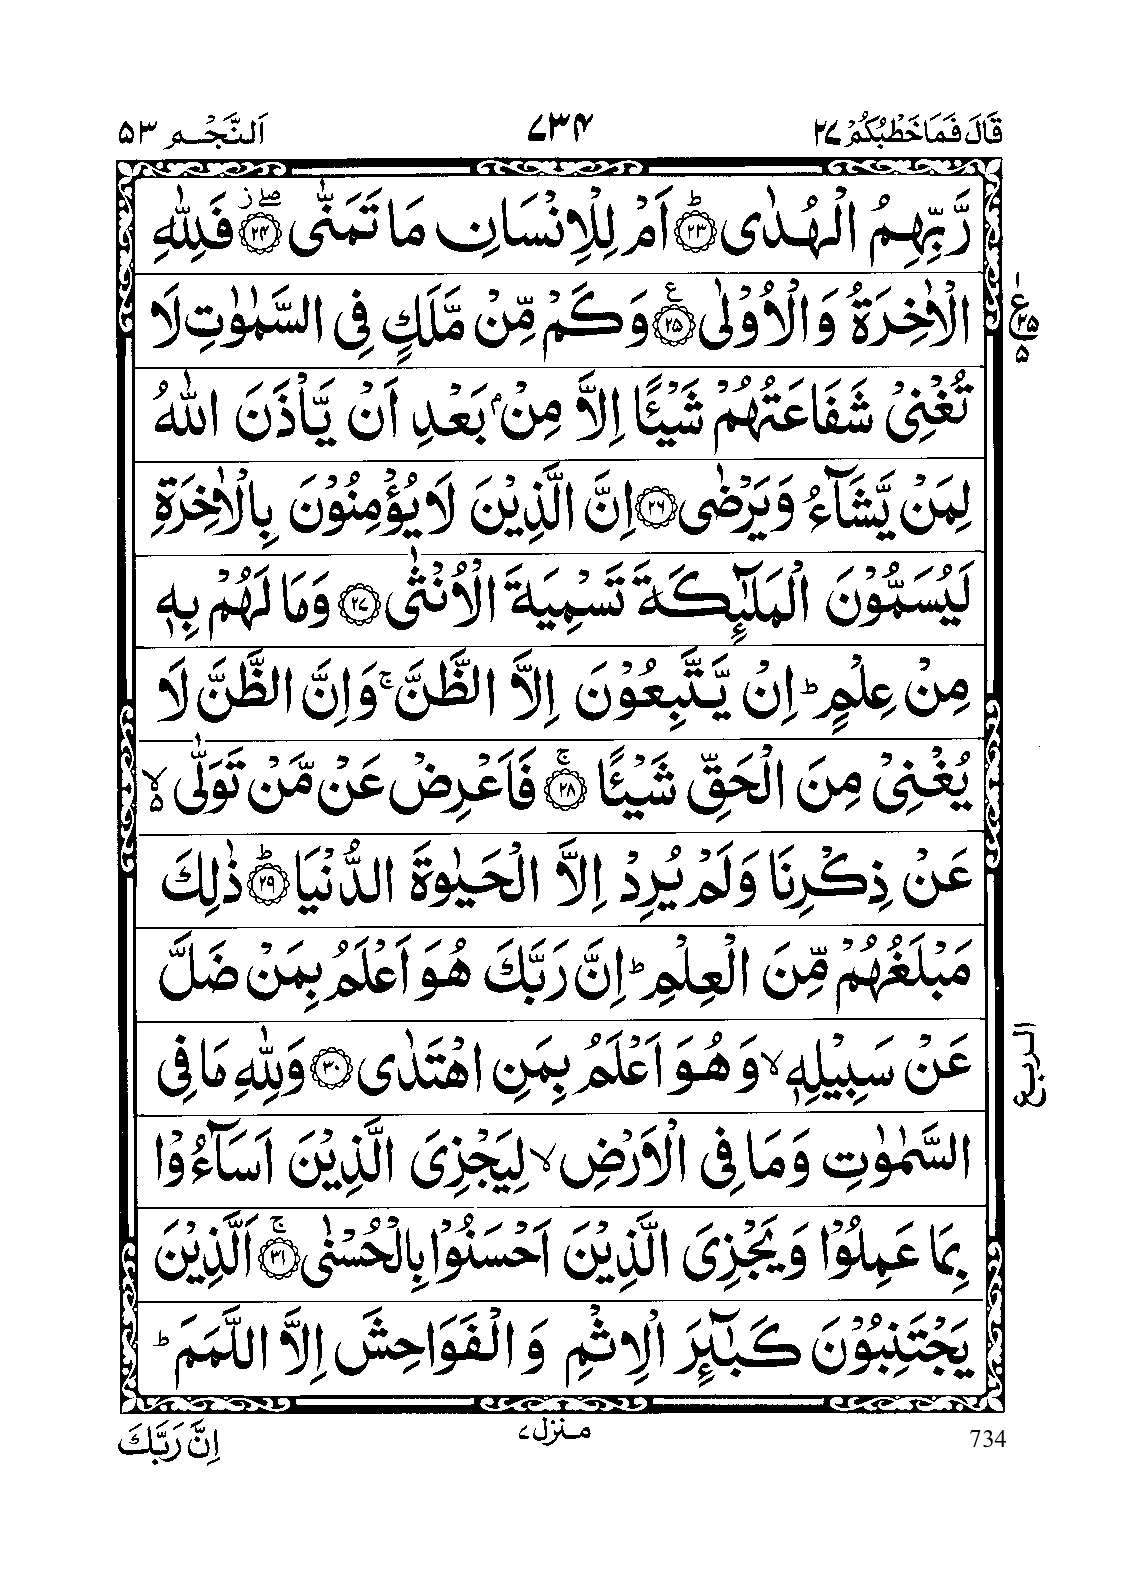 قَالَ فَمَا خَطْبُكُمْ ٢٧ ٧٣٤ اَلنَّجْم ٥٣
رَّبِّهِمُ الْهُدٰى ؕ‏ ﴿۲۳﴾ اَمْ لِلْاِنْسَانِ مَا تَمَنّٰى ۖ ز ﴿۲۴﴾ فَلِلّٰهِ
الْاٰخِرَةُ وَ الْاُوْلٰى ع ﴿۲۵﴾ وَكَمْ مِّنْ مَّلَكٍ فِى السَّمٰوٰتِ لَا
تُغْنِىْ شَفَاعَتُهُمْ شَيْئًا اِلَّا مِنْۢ بَعْدِ اَنْ يَّاْذَنَ اللّٰهُ
لِمَنْ يَّشَآءُ وَيَرْضٰى ﴿۲۶﴾ اِنَّ الَّذِيْنَ لَا يُؤْمِنُوْنَ بِالْاٰخِرَةِ
لَيُسَمُّوْنَ الْمَلٰٓئِكَةَ تَسْمِيَةَ الْاُنْثٰى ﴿۲۷﴾ وَمَا لَهُمْ بِهٖ
مِنْ عِلْمٍ ؕ اِنْ يَّتَّبِعُوْنَ اِلَّا الظَّنَّ ۚ وَاِنَّ الظَّنَّ لَا
يُغْنِىْ مِنَ الْحَقِّ شَيْئًا ۚ ﴿۲۸﴾ فَاَعْرِضْ عَنْ مَّنْ تَوَلّٰى ۙ۬
عَنْ ذِكْرِنَا وَلَمْ يُرِدْ اِلَّا الْحَيٰوةَ الدُّنْيَا ؕ ﴿۲۹﴾ ذٰلِكَ
مَبْلَغُهُمْ مِّنَ الْعِلْمِ ؕ اِنَّ رَبَّكَ هُوَ اَعْلَمُ بِمَنْ ضَلَّ
عَنْ سَبِيْلِهٖ ۙ وَ هُوَ اَعْلَمُ بِمَنِ اهْتَدٰى ﴿۳۰﴾ وَلِلّٰهِ مَا فِى
السَّمٰوٰتِ وَمَا فِى الْاَرْضِ ۙ لِيَجْزِىَ الَّذِيْنَ اَسَآءُوْا
بِمَا عَمِلُوْا وَ يَجْزِىَ الَّذِيْنَ اَحْسَنُوْا بِالْحُسْنٰى ۚ ﴿۳۱﴾ اَلَّذِيْنَ
يَجْتَنِبُوْنَ كَبٰٓئِرَ الْاِثْمِ وَ الْفَوَاحِشَ اِلَّا اللَّمَمَ ؕ
ع ٢٥ ٥
الربع
734 منزل ٧ اِنَّ رَبَّكَ